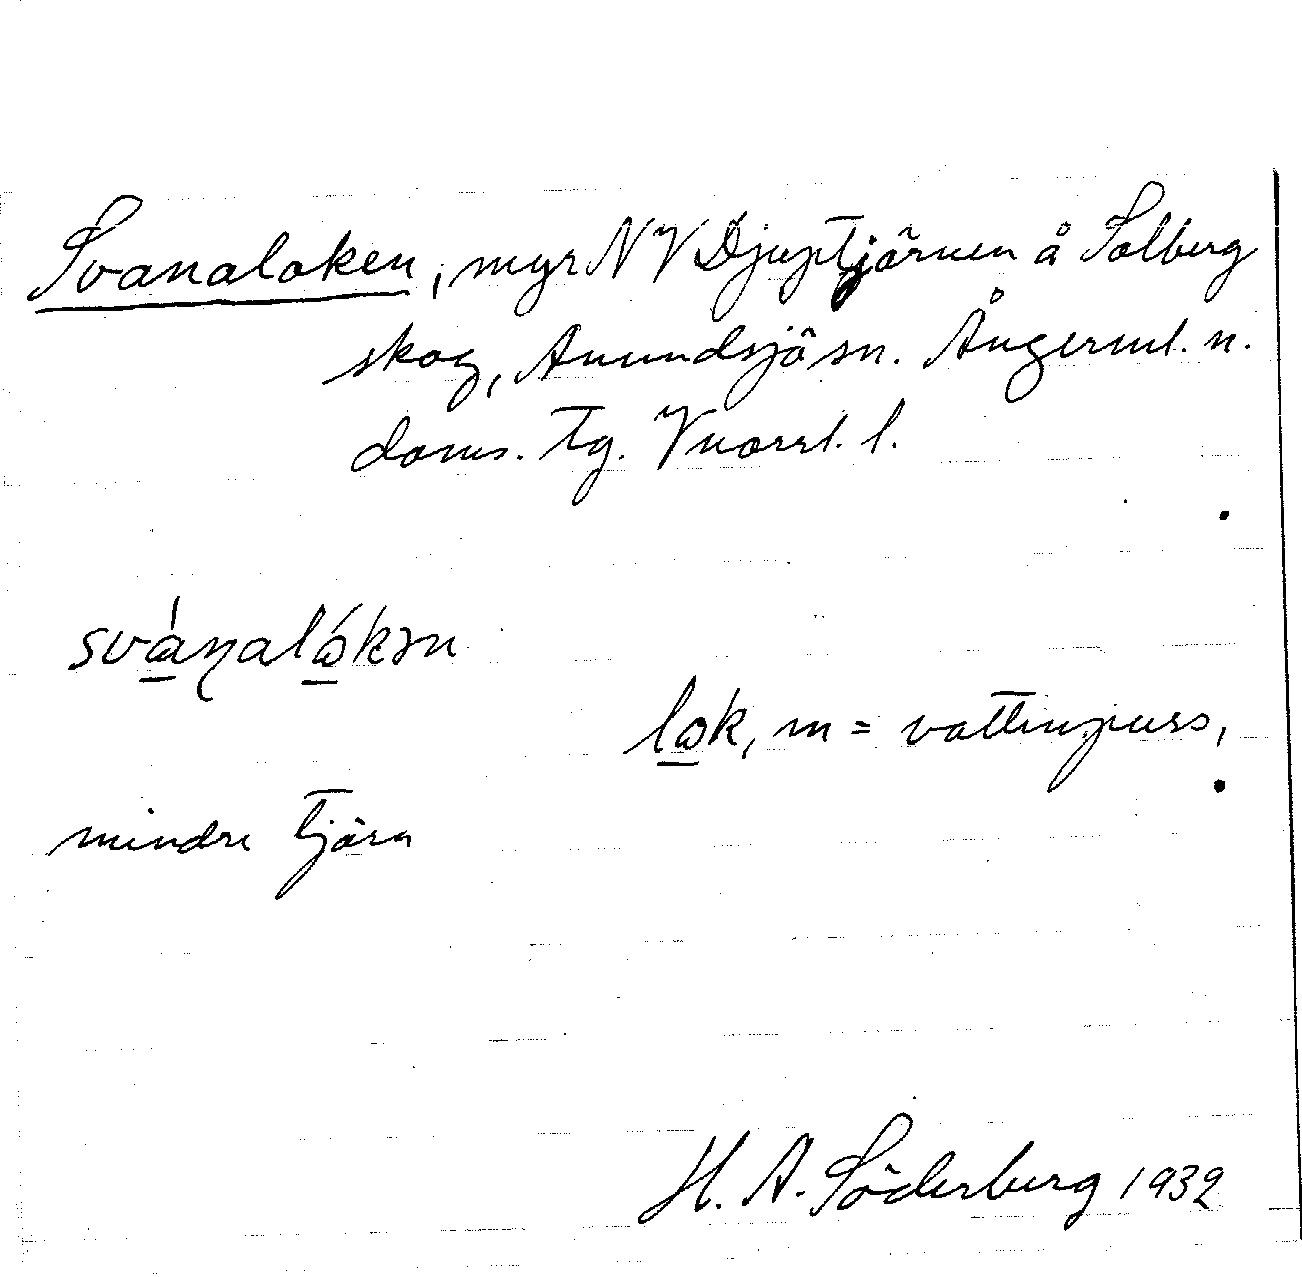 Svanaloken, myr NV Djuptjärnen å Solberg
skog, Anundsjö sn. Ångerml. n.
doms. Tg. Väster. l.
svánalókən
lok, m = vattenpuss,
mindre tjärn
H. A. Söderberg 1932